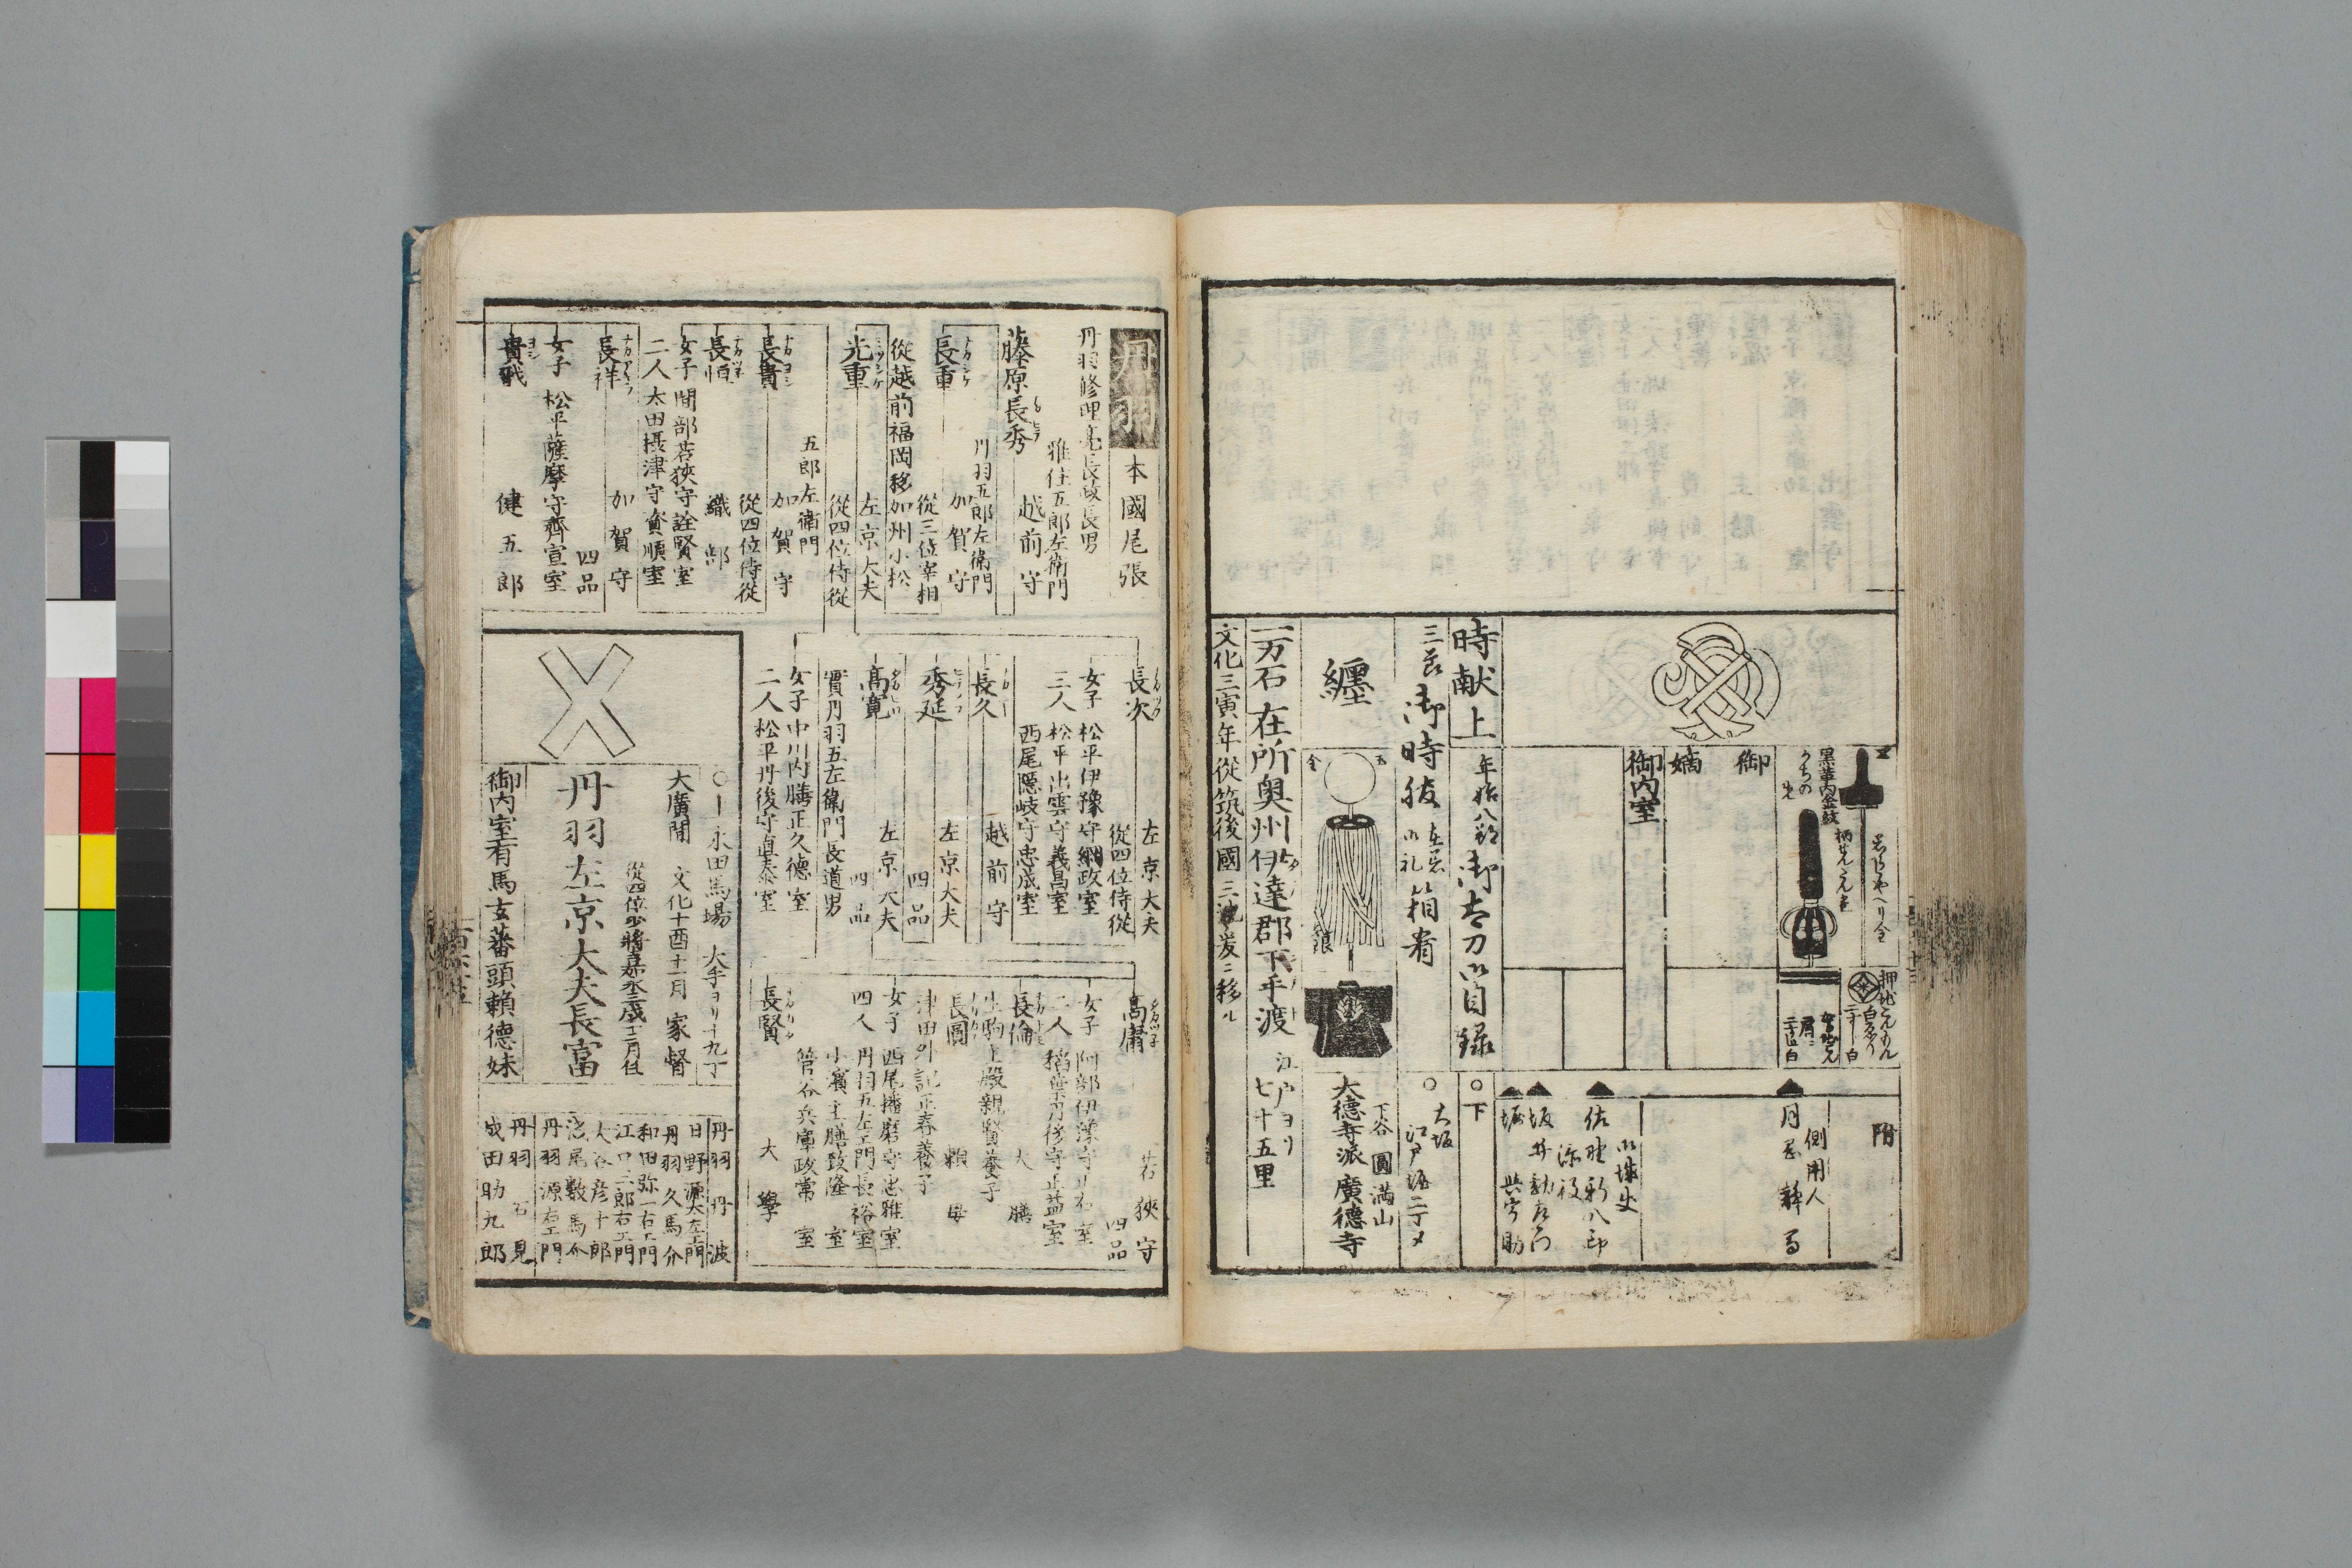 附
側用人
時献上
年始八朔御太刀御目録
御
嫡
御内室
黒革内金紋
三季御時服
在着御礼
箱肴
佐野新八郎
添役
御城使
下
大坂
江戸
纏
銀
下谷
圓満山
大徳寺派廣徳寺
一万石在所奥州伊達郡下手渡
江戸ヨリ七十五里
文化三寅年従筑後國三池爰ニ移ル
丹羽
本國尾張
丹羽修理亮長政長男
雅仕五郎左衛門
藤原長秀
越前守
丹羽五郎左衛門
長重
加賀守
従三位宰相
従越前福岡移加州小松
光重
左京大夫
従四位侍従
五郎左衛門
長貴
加賀守
従四位侍従
長恒
織部
女子
間部若狭守詮賢室
二人
太田摂津守資順室
長祥
加賀守
四品
女子
松平薩摩守齊宣室
貴戰
健五郎
長次
左京大夫
従四位侍従
女子
松平伊豫守綱政室
三人
松平出雲守義昌室
西尾隠岐守忠成室
長久
越前守
秀延
左京大夫
四品
高寛
左京大夫
四品
實丹羽五左衛門長道男
女子
中川内膳正久徳室
二人
松平丹後守直泰室
高庸
若狭守
四品
女子
阿部伊豫守正右室
二人
稲葉丹後守正益室
長倫
大膳
生駒主殿親賢養子
長圖
頼母
津田外記正春養子
女子
西尾播磨守忠雅室
四人
丹羽五左エ門長裕室
小濱主膳致隆室
管谷兵庫政常室
長賢
大學
永田馬場
大手ヨリ十九丁
大廣間
文化十酉十一月家督
丹羽左京大夫長富
御内室有馬玄蕃頭頼徳妹
丹羽丹波
日野源太左エ門
丹羽久馬介
和田弥一右エ門
江口三郎右エ門
大谷彦十郎
浅尾數馬介
丹羽源右エ門
丹羽石見
成田助九郎